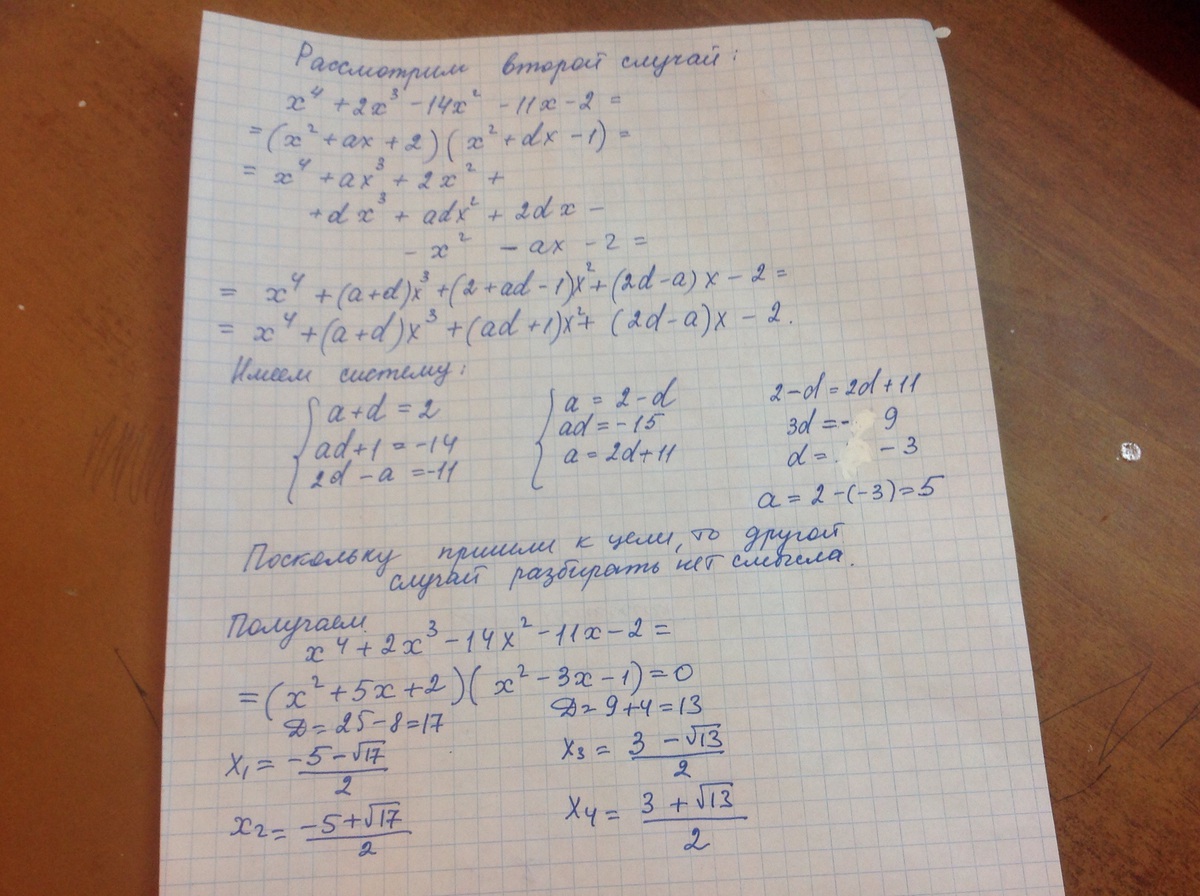 Рассмотрим второй случай:
x⁴ + 2x³ - 14x² - 11x - 2 =
= (x² + ax + 2)(x² + dx - 1) =
= x⁴ + ax³ + 2x² +
+ dx³ + adx² + 2dx -
- x² - ax - 2 =
= x⁴ + (a+d)x³ + (2 + ad - 1)x² + (2d - a)x - 2 =
= x⁴ + (a+d)x³ + (ad + 1)x² + (2d - a)x - 2.
Имеем систему:
{ a + d = 2
ad + 1 = -14
2d - a = -11
{ a = 2 - d
ad = -15
a = 2d + 11
2 - d = 2d + 11
3d = - 9
d = . - 3
a = 2 - (-3) = 5
Поскольку пришли к цели, то другой
случай разбирать нет смысла.
Получаем
x⁴ + 2x³ - 14x² - 11x - 2 =
= (x² + 5x + 2)(x² - 3x - 1) = 0
D = 25 - 8 = 17
D = 9 + 4 = 13
x₁ = (-5 - √17)/2
x₃ = (3 - √13)/2
x₂ = (-5 + √17)/2
x₄ = (3 + √13)/2